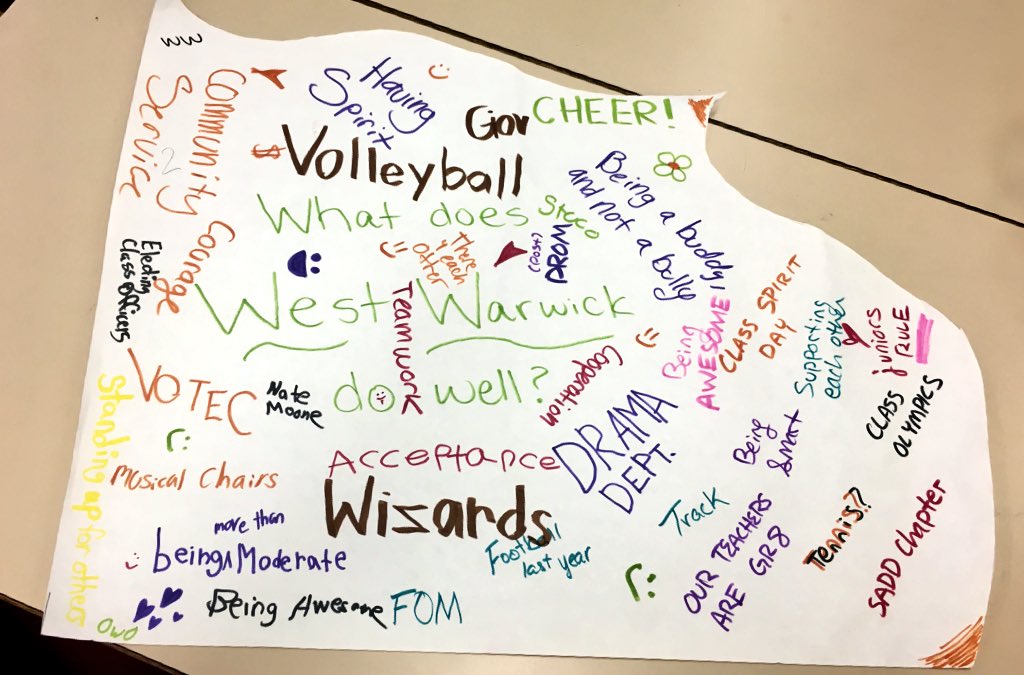 Community
Service
2
Having
Spirit
Gov
CHEER!
$
Volleyball
Being a buddy,
and not a bully
What does
Steco
(post)
PROM
There
4 each
other
Courage
Electing
Class officers
West Warwick
Teamwork
Being
AWESOME
CLASS SPIRIT
DAY
Supporting
each other
juniors
RULE
VOTEC
Nate
Moone
do well?
Cooperation
CLASS
OLYMPICS
DRAMA
DEPT.
Being
Smart
Standing up for others
Musical Chairs
Acceptance
Wizards
Track
Tennis??
SADD Chapter
more than
being^Moderate
Football
last year
OUR TEACHERS
ARE GR8
Being Awesome
FOM
OwO